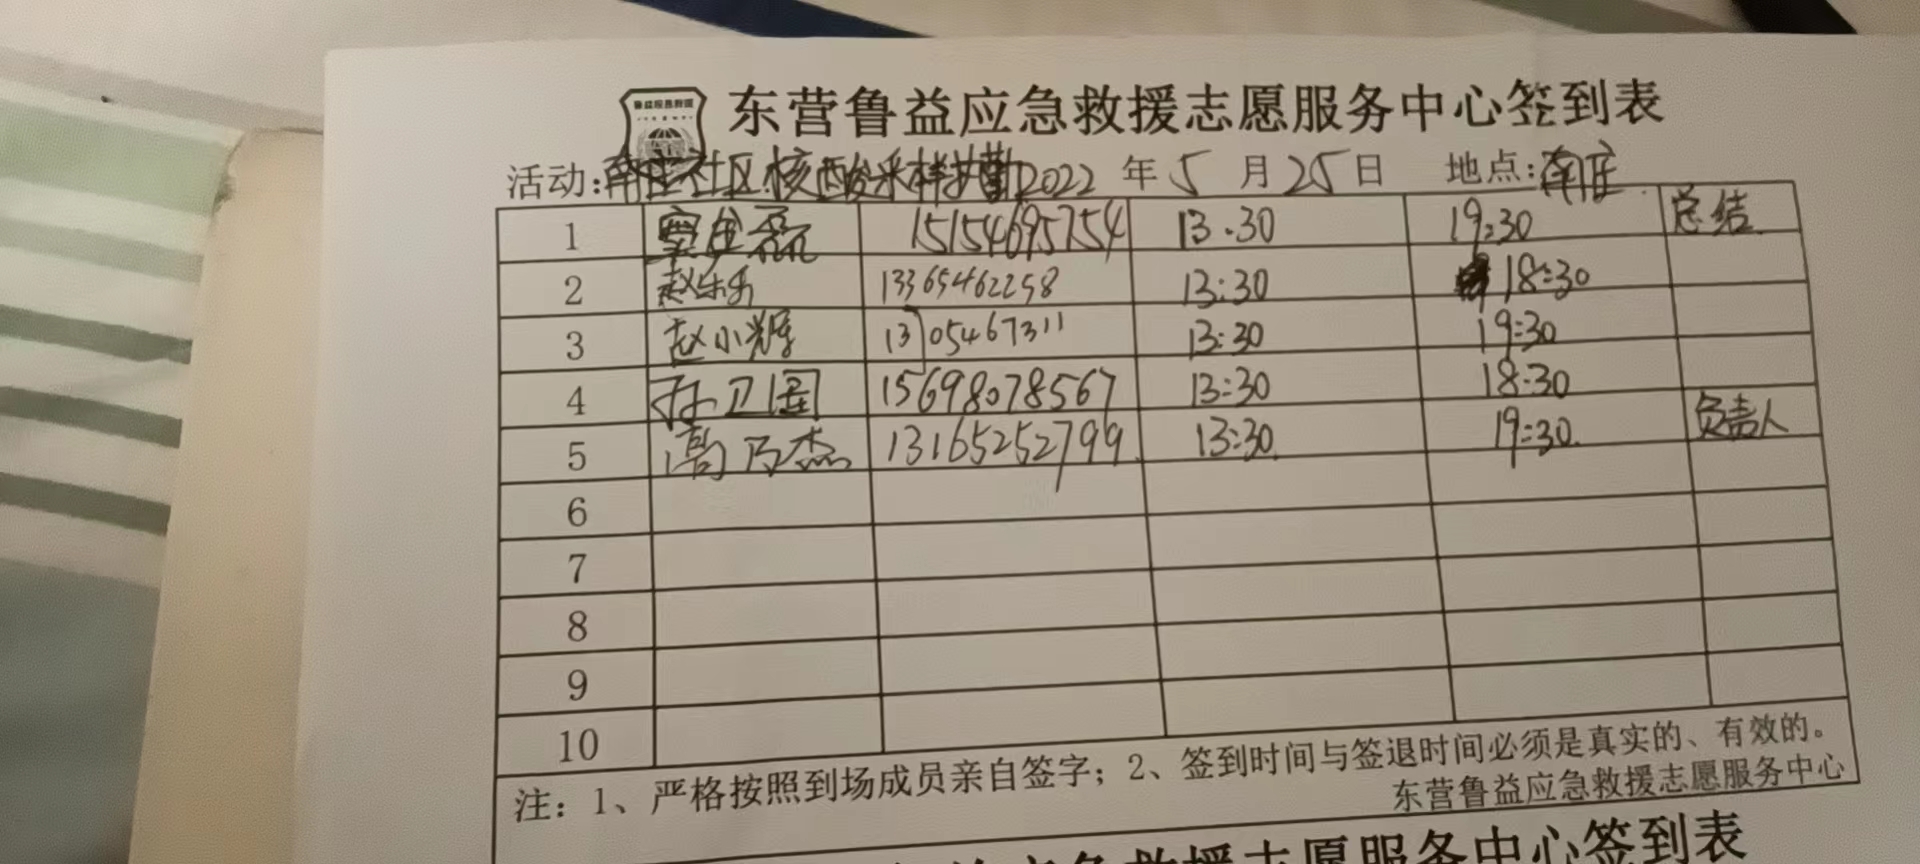 东营鲁益应急救援志愿服务中心签到表
活动:南庄社区核酸采样执勤 2022年5月25日 地点:南庄
1 15154695754 13:30 19:30 总结
2 赵乐乐 13365462258 13:30 18:30
3 赵小辉 13105467311 13:30 19:30
4 孙卫国 15698078567 13:30 18:30
5 高乃杰 13165252799 13:30 19:30 负责人
6
7
8
9
10
注：1、严格按照到场成员亲自签字；2、签到时间与签退时间必须是真实的、有效的。
东营鲁益应急救援志愿服务中心
急救援志愿服务中心签到表